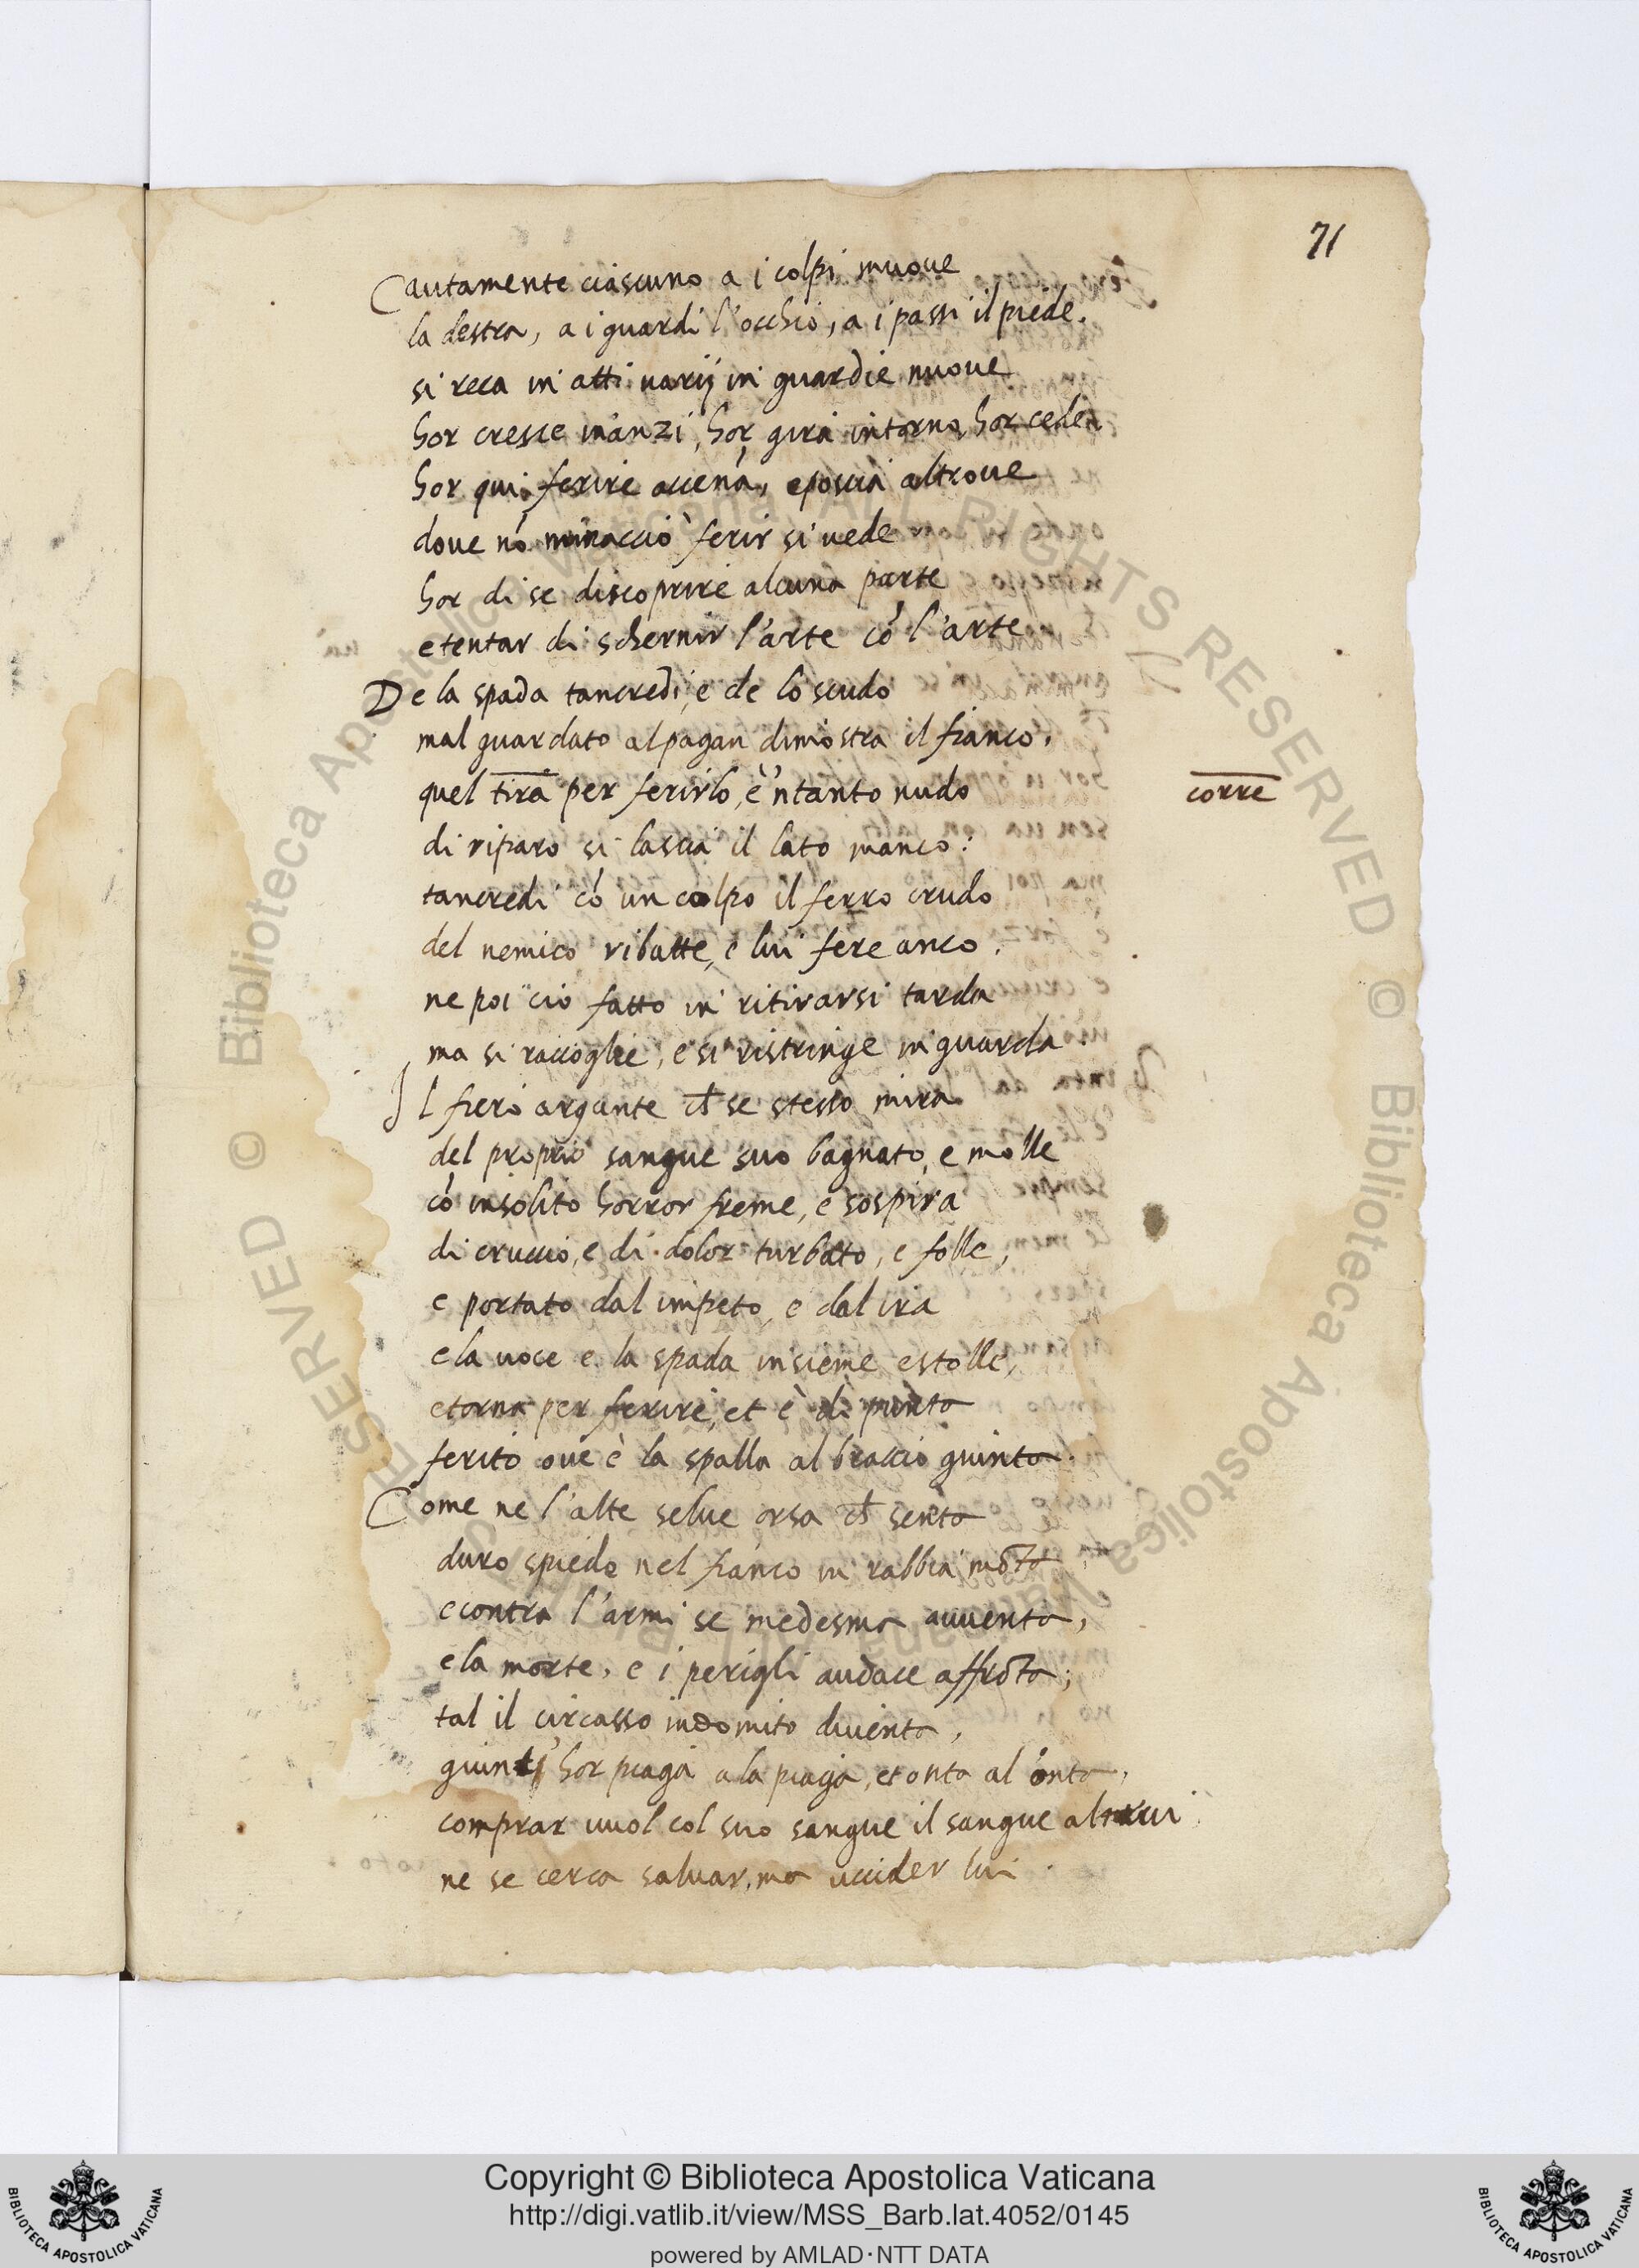 71
Cautamente ciascuno a i colpi muoue
la destra, a i guardi l'occhio, a i passi il piede.
si reca in atti uarij in guardie nuoue
hor cresce inanzi, hor gira intorno, hor cede,
hor qui ferire accena, e poscia altroue
doue nó minacciò ferir si uede
hor di se discoprire alcuna parte
e tentar di schernir l'arte có l'arte
De la spada tancredi, e de lo scudo
mal guardato al pagan dimostra il fianco.
quel tira per ferirlo, è 'ntanto nudo
corre
di riparo si lascia il lato manco:
tancredi có un colpo il ferro crudo
del nemico ribatte, e lui fere anco.
ne poi ciò fatto in ritirarsi tarda
ma si raccoglie, e si ristringe in guarda
Il fiero argante ch̄ se stesso mira
del proprio sangue suo bagnato, e molle
có insolito horror freme, e sospira
di cruccio, e di dolor turbato, e folle,
e portato dal impeto, e dal ira
e la uoce e la spada insieme estolle,
e torna per ferire, et è di punta
ferito oue è la spalla al braccio guinta.
Come ne l'alte selue orsa ch̄ senta
duro spiedo nel fianco in rabbia mōta
e contra l'armi se medesma auuenta,
e la morte, e i perigli audace affrōta;
tal il circasso indomito diuenta,
guint' hor piaga a la piaga, et onta al onta,
comprar uuol col suo sangue il sangue altrui
ne se cerca saluar, ma uccider lui
Copyright © Biblioteca Apostolica Vaticana
http://digi.vatlib.it/view/MSS_Barb.lat.4052/0145
powered by AMLAD·NTT DATA